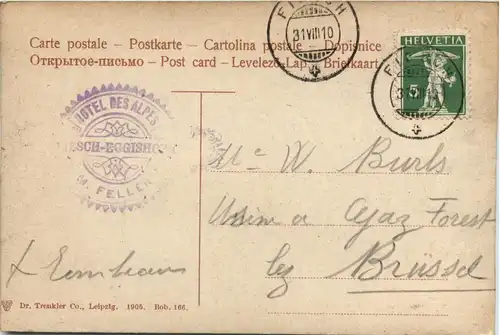 Carte postale – Postkarte – Cartolina postale – Dopisnice
Открытое-письмо – Post card – Levelező-Lap – Briefkaart
31 VIII 10
HELVETIA
5
HOTEL DES ALPES
FIESCH-EGGISHORN
M. FELLER
W. Burls
Usine a Gaz Forest
lez Brüssel
Dr. Trenkler Co., Leipzig. 1905. Bob. 166.